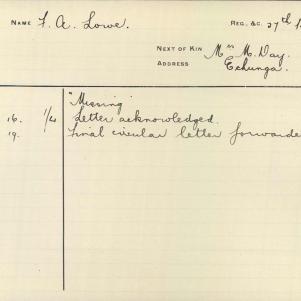 NAME F. A. Lowe. REG. &C. 27th
NEXT OF KIN Mrs M. Day.
ADDRESS Echunga.
"Missing"
16. 1/4 Letter acknowledged.
19. Final circular letter forwarde